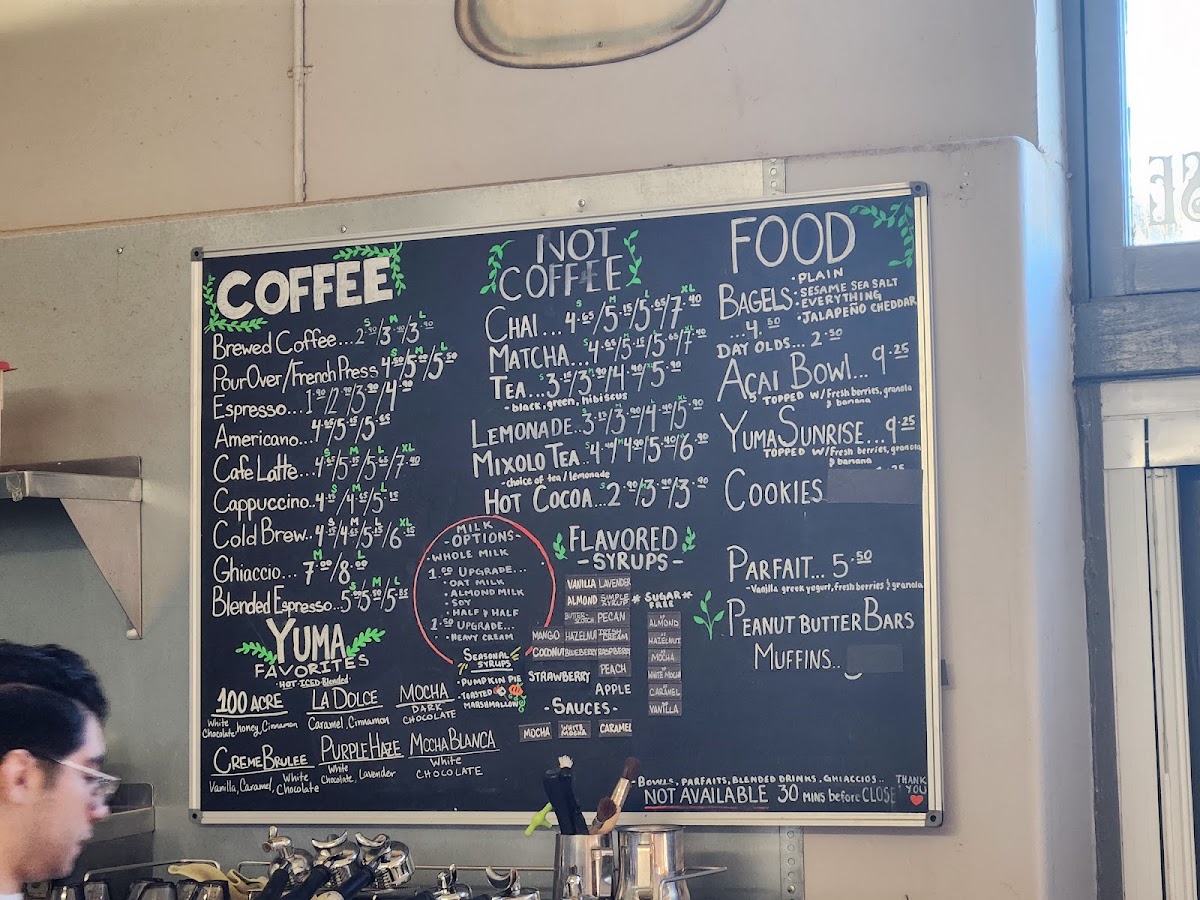 COFFEE
Brewed Coffee...2.90/3.40/3.90
S M L
Pour Over/French Press 4.50/5.00/5.50
Espresso...1.90/2.90/3.90/4.90
Americano...4.65/5.15/5.65
Cafe Latte...4.65/5.15/5.65/7.40
S M L XL
Cappuccino..4.15/4.65/5.15
Cold Brew..4.15/4.65/5.15/6.15
Ghiaccio... 7.00/8.00
Blended Espresso...5.00/5.50/5.85
YUMA
FAVORITES
-Hot-Iced-Blended-
100 ACRE
White Chocolate, honey, Cinnamon
LA DOLCE
Caramel, Cinnamon
MOCHA
DARK
CHOCOLATE
CREME BRULEE
Vanilla, Caramel, White Chocolate
PURPLE HAZE
White Chocolate, Lavender
MOCHA BLANCA
White
CHOCOLATE
NOT
COFFEE
CHAI...4.65/5.15/5.65/7.40
S M L XL
MATCHA...4.65/5.15/5.65/7.40
TEA...3.15/3.90/4.40/5.90
-black, green, hibiscus
LEMONADE..3.15/3.90/4.40/5.90
MIXOLO TEA..4.40/4.90/5.40/6.90
-choice of tea/lemonade
HOT COCOA...2.90/3.40/3.90
MILK
-OPTIONS-
·WHOLE MILK
1.00 UPGRADE...
·OAT MILK
·ALMOND MILK
·SOY
·HALF & HALF
1.50 UPGRADE...
·HEAVY CREAM
SEASONAL
SYRUPS
·PUMPKIN PIE
·TOASTED
MARSHMALLOW
FLAVORED
-SYRUPS-
VANILLA LAVENDER
ALMOND SIMPLE SYRUP
BUTTERSCOTCH PECAN
MANGO HAZELNUT IRISH CREAM
COCONUT BLUEBERRY RASPBERRY
STRAWBERRY PEACH
APPLE
*SUGAR*
FREE
ALMOND
HAZELNUT
MOCHA
WHITE MOCHA
CARAMEL
VANILLA
-SAUCES-
MOCHA WHITE MOCHA CARAMEL
FOOD
BAGELS
...4.50
·PLAIN
·SESAME SEA SALT
·EVERYTHING
·JALAPEÑO CHEDDAR
DAY OLDS... 2.50
AÇAI BOWL... 9.25
TOPPED W/Fresh berries, granola
& banana
YUMA SUNRISE...9.25
TOPPED W/Fresh berries, granola
& banana
COOKIES
PARFAIT... 5.50
-Vanilla greek yogurt, fresh berries & granola
PEANUT BUTTER BARS
MUFFINS..
-BOWLS, PARFAITS, BLENDED DRINKS, GHIACCIOS..
NOT AVAILABLE 30 MINS before CLOSE
THANK
YOU